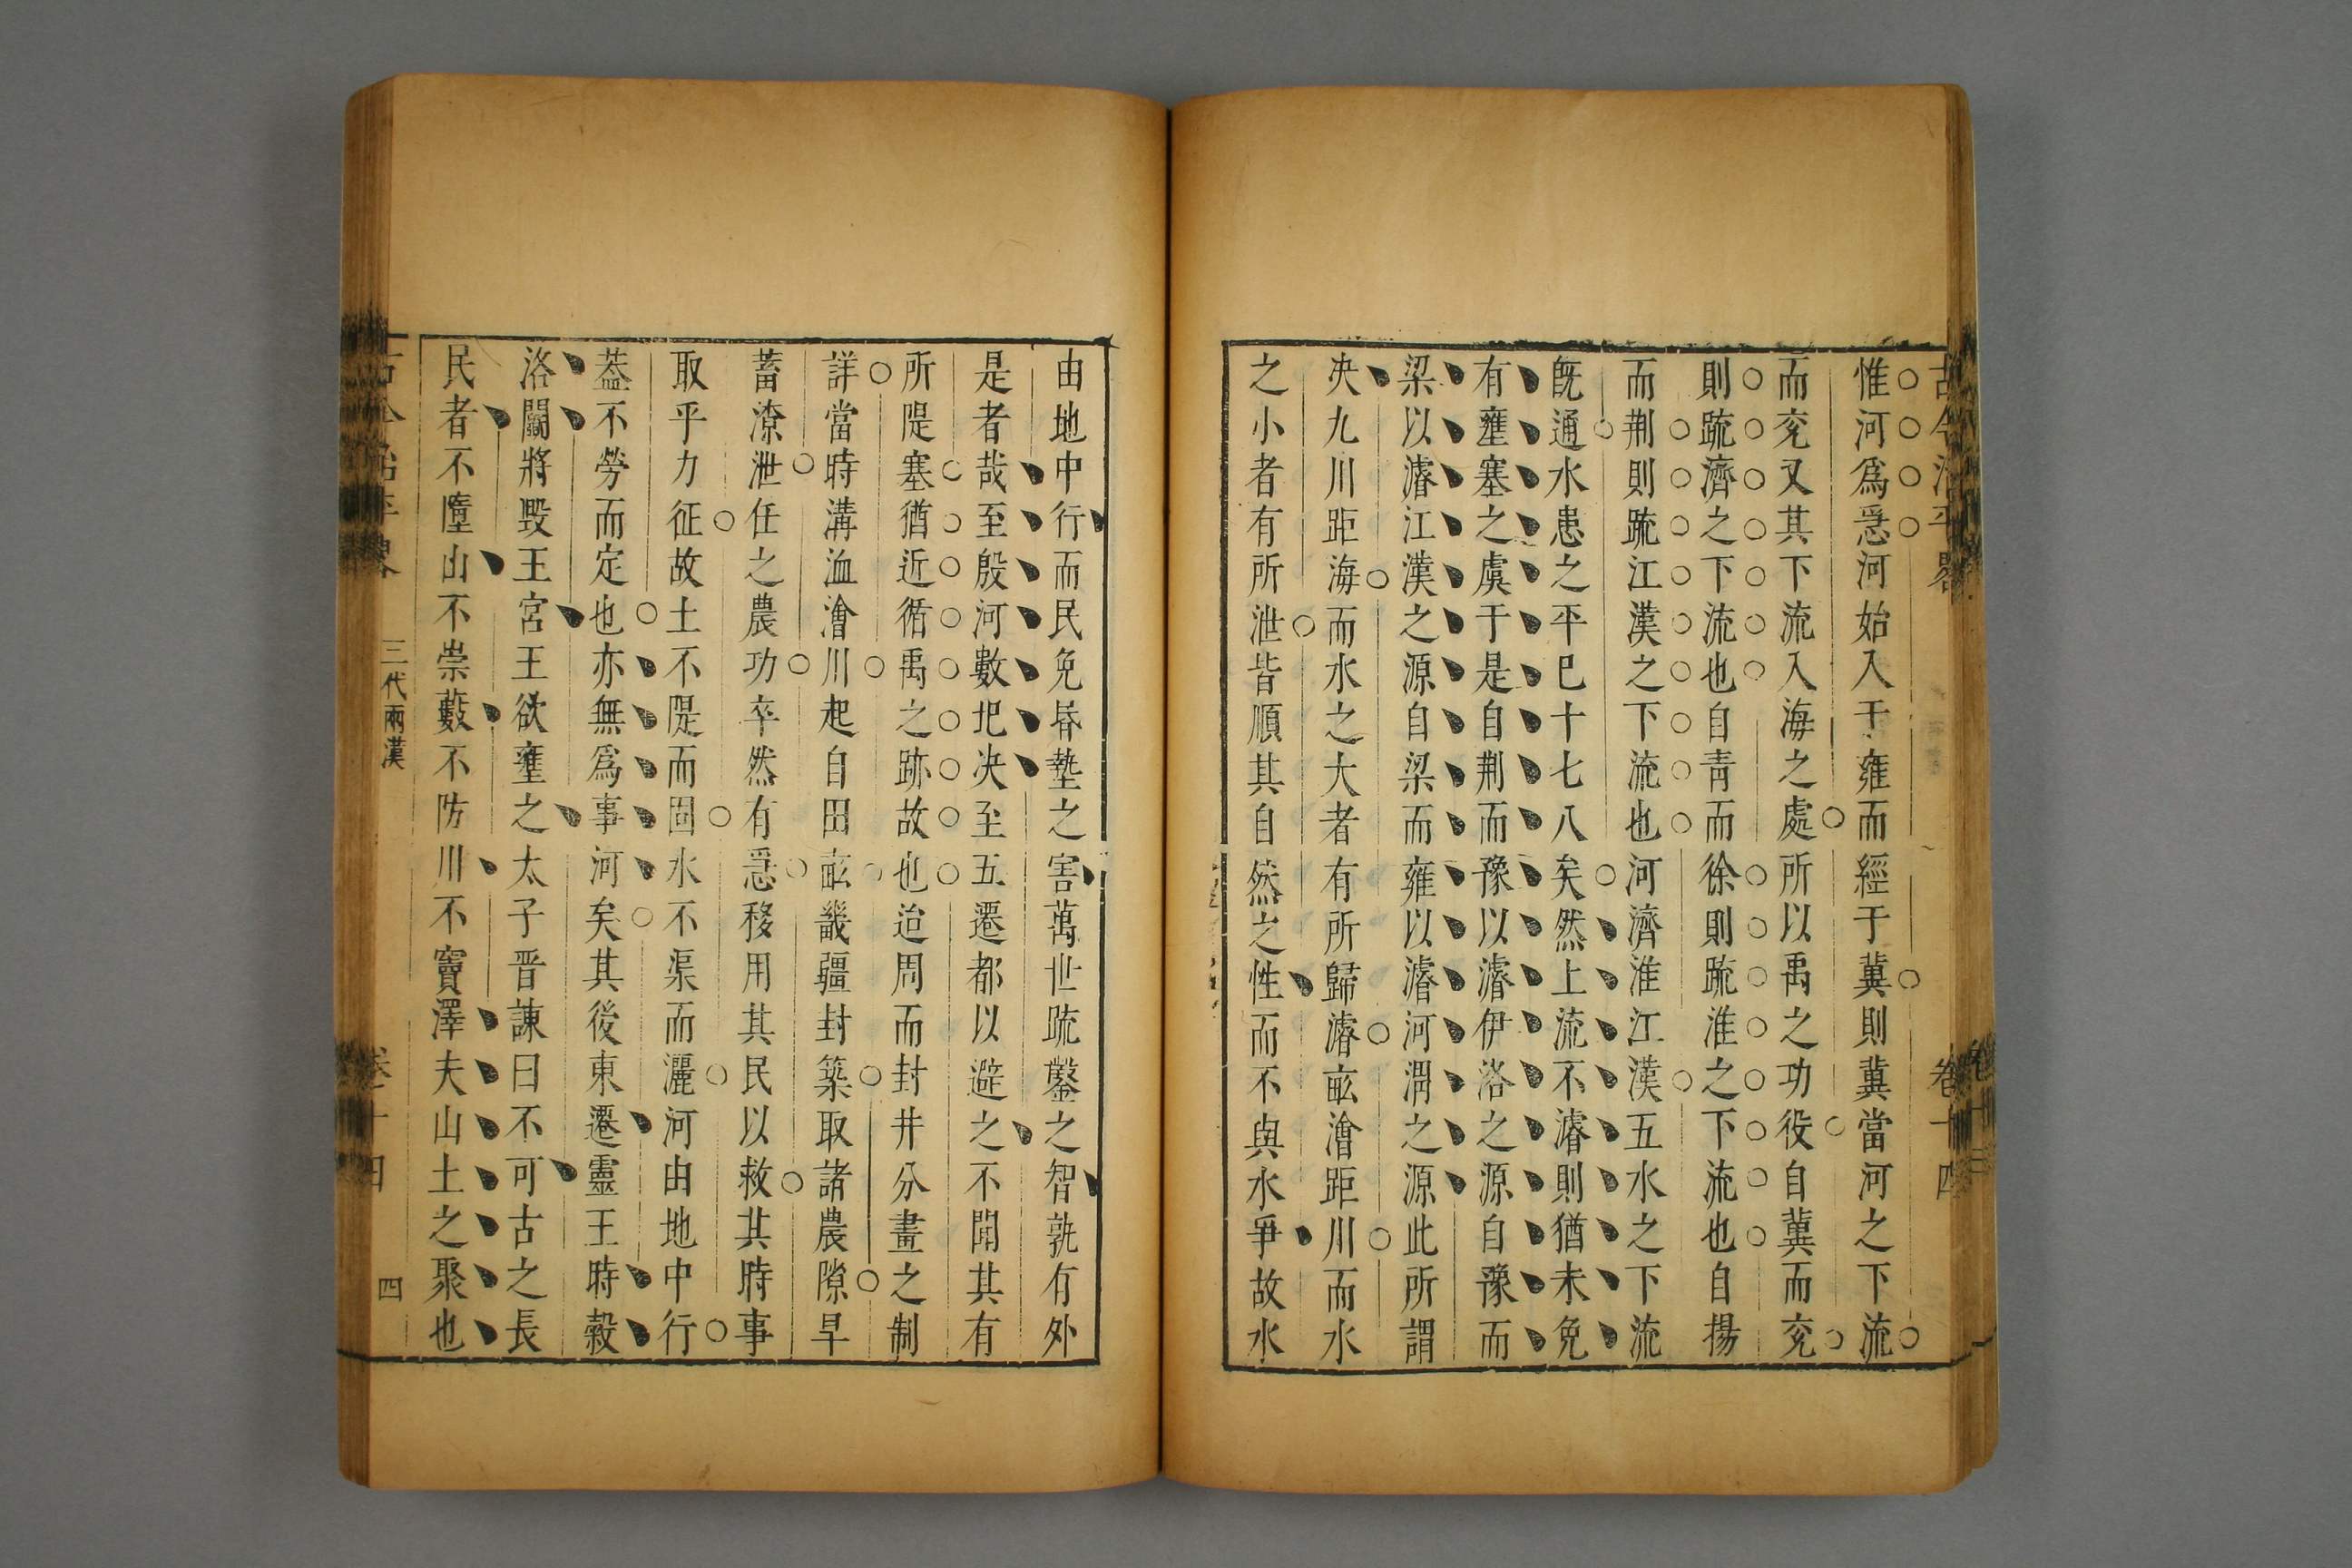 古今治平畧
卷十四
惟河爲惡河始入于雍而經于冀則冀當河之下流
而兖又其下流入海之處所以禹之功役自冀而兖
則䟽濟之下流也自青而徐則䟽淮之下流也自揚
而荆則䟽江漢之下流也河濟淮江漢五水之下流
旣通水患之平巳十七八矣然上流不濬則猶未免
有壅塞之虞于是自荆而豫以濬伊洛之源自豫而
梁以濬江漢之源自梁而雍以濬河渭之源此所謂
决九川距海而水之大者有所歸濬畝澮距川而水
之小者有所泄皆順其自然之性而不與水爭故水
由地中行而民免昏墊之害萬世䟽鑿之智孰有外
是者哉至殷河數圯决至五遷都以避之不聞其有
所隄塞猶近循禹之跡故也迨周而封井分畫之制
詳當時溝洫澮川起自田畝畿疆封築取諸農隙旱
蓄潦泄任之農功卒然有惡移用其民以救其時事
取乎力征故土不隄而固水不渠而灑河由地中行
葢不勞而定也亦無爲事河矣其後東遷靈王時穀
洛鬭將毀王宮王欲壅之太子晋諫曰不可古之長
民者不墮山不崇藪不防川不竇澤夫山土之聚也
古今治平畧
三代兩漢
卷十四
四